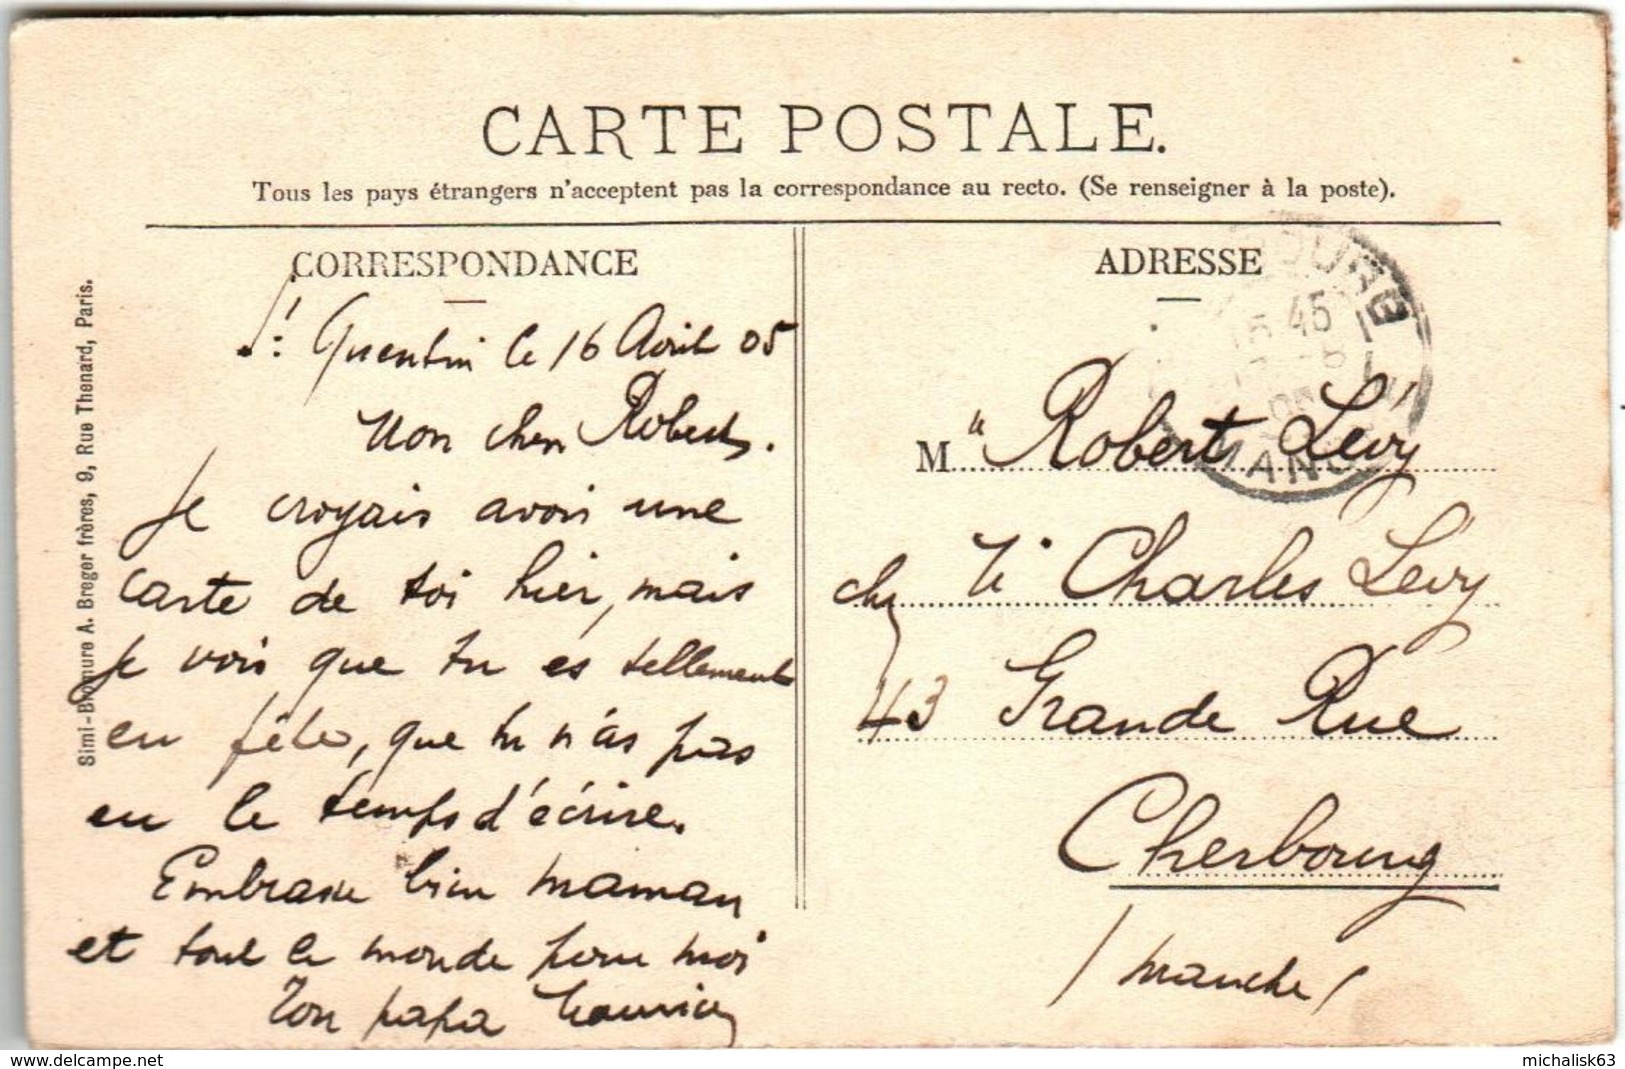 CARTE POSTALE.
Tous les pays étrangers n'acceptent pas la correspondance au recto. (Se renseigner à la poste).
CORRESPONDANCE
St Quentin le 16 Avril 05
Mon cher Robert.
Je croyais avoir une
carte de toi hier, mais
je vois que tu es tellement
en fête, que tu n'as pas
eu le temps d'écrire.
Embrasse bien maman
et tout le monde pour moi
Ton papa Maurice
Simi-Bromure A. Breger frères, 9, Rue Thenard, Paris.
ADRESSE
M Robert Lévy
Charles Lévy
43 Grande Rue
Cherbourg
(Manche)
45
MANCHE
michalisk63
www.delcampe.net